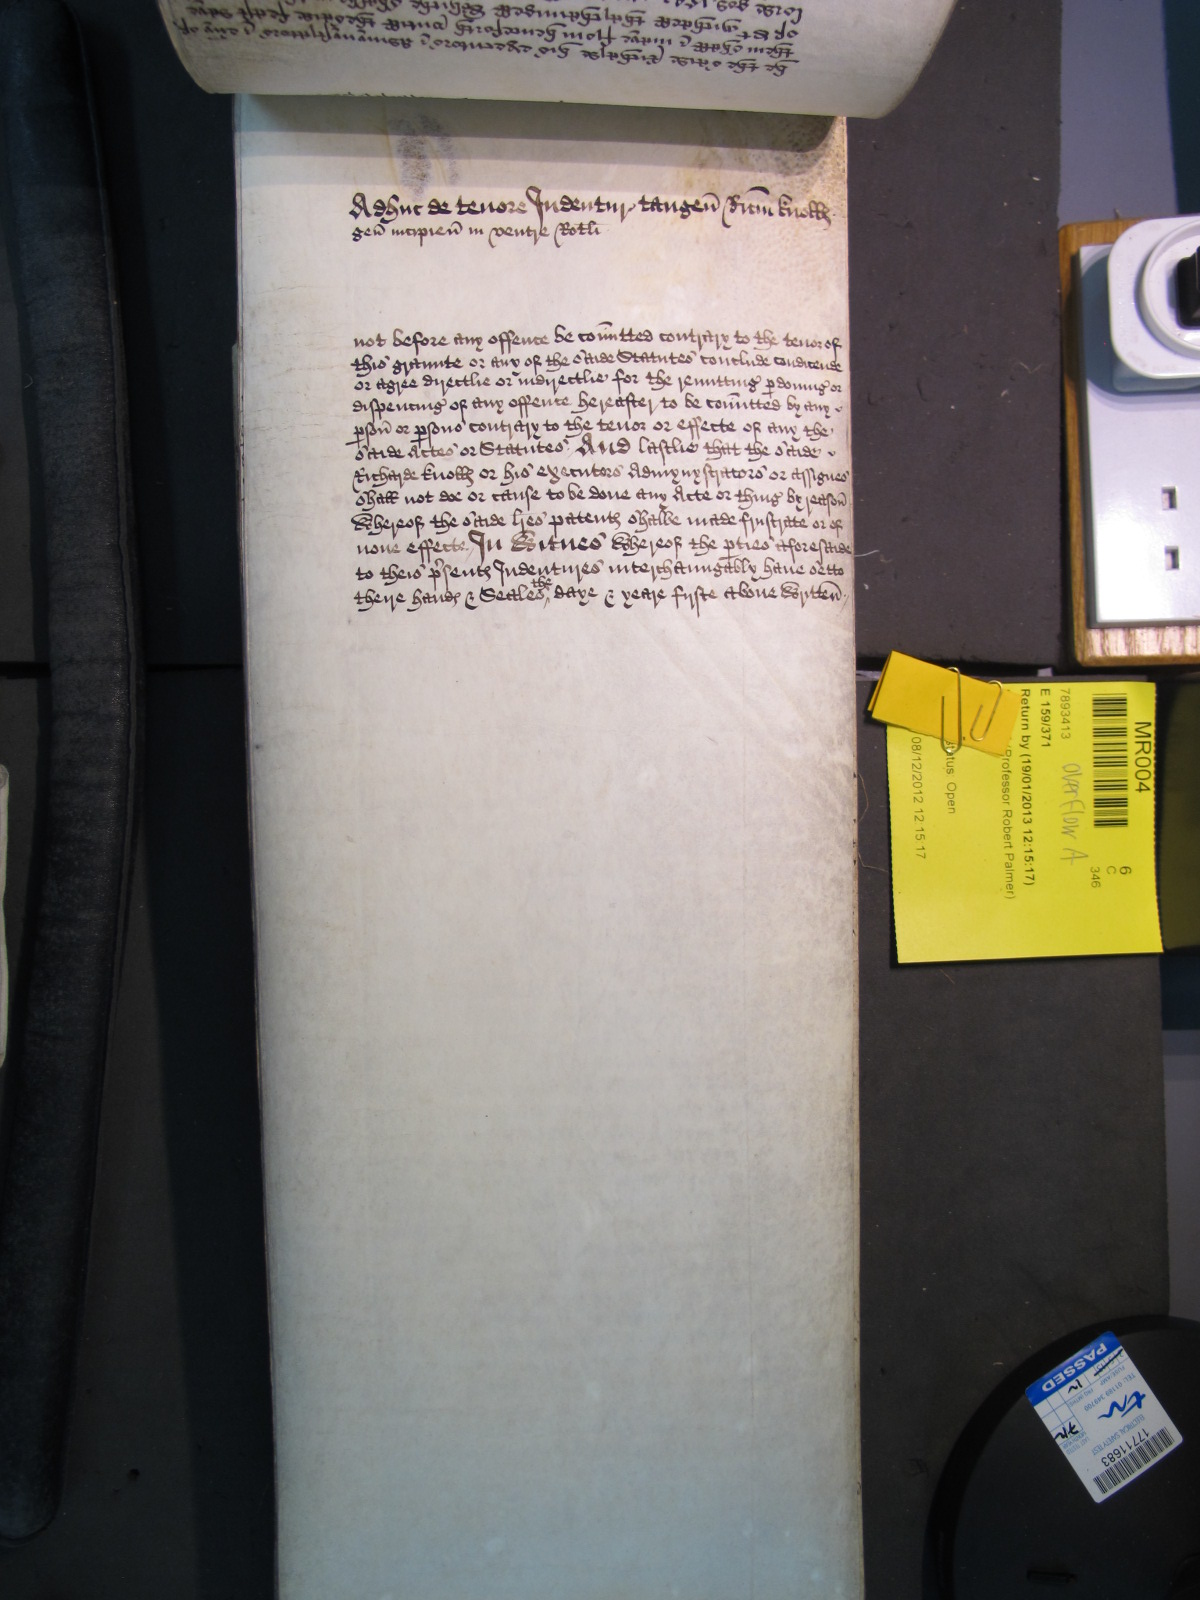 Adhuc de tenore Indentur tangeñ Ricm̃ Knollℓ
geñ incipieñ in ventre Rotłi
not before any offence be com̃itted contrary to the tenor of
this graunte or any of the saide Statutes conclude condicende
or agree directlie or indirectlie for the remitting pdoning or
dispencing of any offence hereafter to be com̃itted by any
psoñ or psons contrary to the tenor or effecte of any the
saide Actes or Statutes. And lastlie that the saide
Richarde Knollℓ or his executors Admynystrators or assignes
shall not doe or cause to be done any Acte or thing by reasoñ
whereof the saide łres patentℓ shalbe made frustrate or of
none effecte. In Witnes whereof the pties aforesaide
to theis p̃sentℓ Indentures interchaungably have sett
theire handℓ & Seales the daye & yeare firste above writteñ.
MR004
6
C
346
7893413
overflow A
E 159/371
Return by (19/01/2013 12:15:17)
(Professor Robert Palmer)
Status: Open
08/12/2012 12:15:17
PASSED
ELECTRICAL SAFETY TEST
17711683